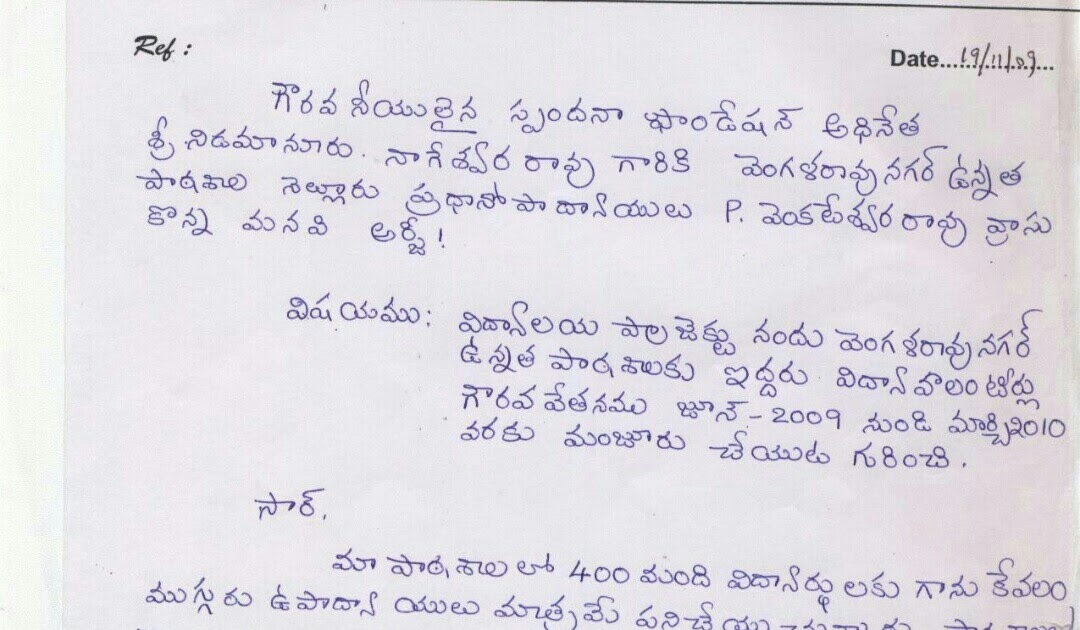 Ref :
Date....19/11/09...
గౌరవనీయులైన స్పందనా ఫౌండేషన్ అధినేత
శ్రీ నిడమానూరు. నాగేశ్వర రావు గారికి వెంగళరావునగర్ ఉన్నత
పాఠశాల నెల్లూరు ప్రధానోపాద్యాయులు P. వెంకటేశ్వర రావు వ్రాసు
కొన్న మనవి అర్జీ!
విషయము: విద్యాలయ ప్రాజెక్టు నందు వెంగళరావునగర్
ఉన్నత పాఠశాలకు ఇద్దరు విద్యా వాలంటీర్లు
గౌరవవేతనము జూన్-2009 నుండి మార్చి2010
వరకు మంజూరు చేయుట గురించి.
సార్,
మా పాఠశాలలో 400 మంది విద్యార్థులకు గాను కేవలం
ముగ్గురు ఉపాద్యాయులు మాత్రమే